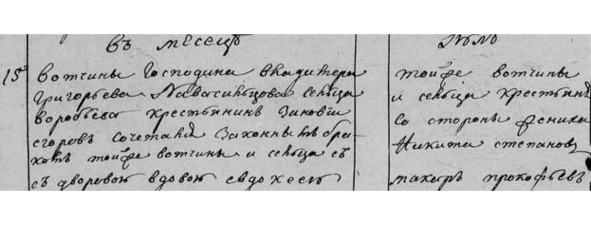 въ месецѣ
15 вотчины Господина Владимера
Григорьева Сельца
воробьева крестьянинъ Зиновiи
егоровъ сочетанъ Законнымъ бра
комъ тойже вотчины и сельца съ
съ дворовою вдовою евдокеею
тойже вотчины
и сельца крестьяня
Со стороны жениха
Никита степановъ
макаръ прокофьевъ